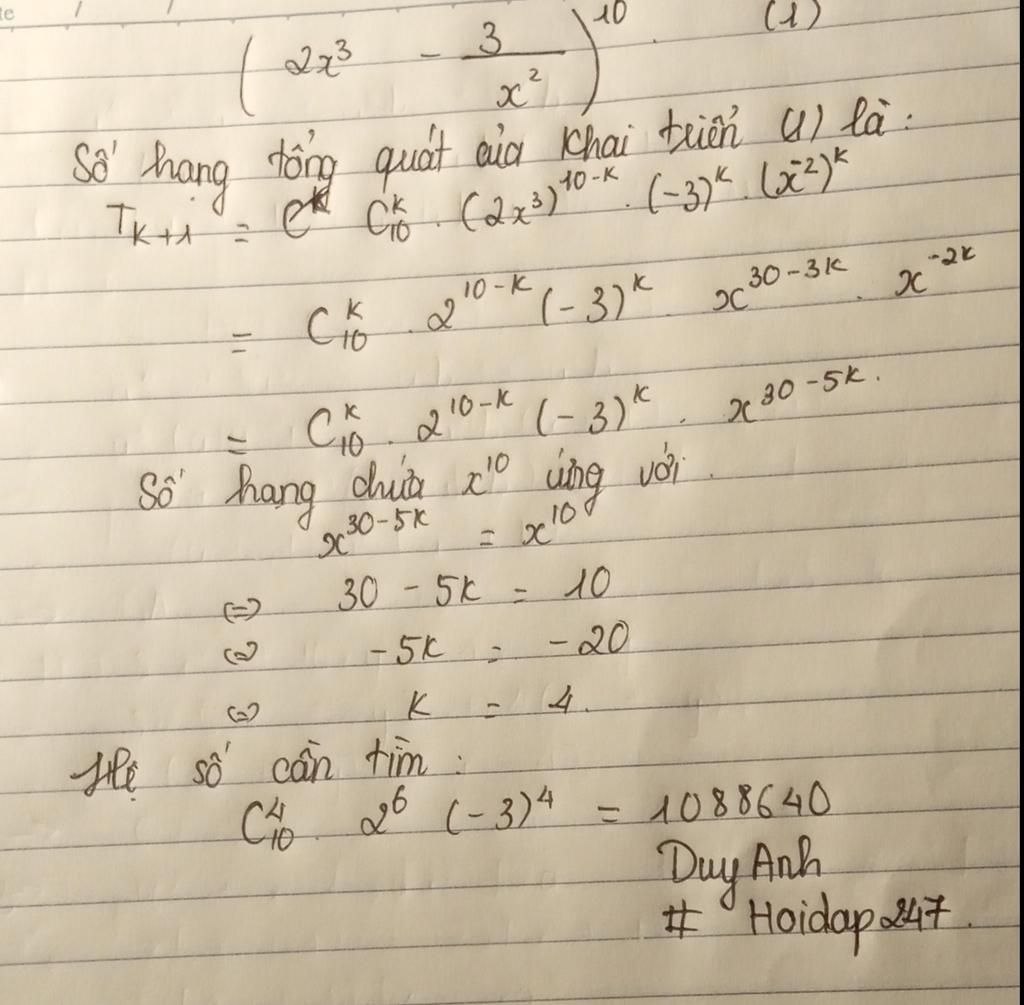 (2x³ - 3/x²)¹⁰ (1)
Số hạng tổng quát của khai triển (1) là:
Tₖ₊₁ = C₁₀ᵏ . (2x³)¹⁰⁻ᵏ . (-3)ᵏ . (x⁻²)ᵏ
= C₁₀ᵏ . 2¹⁰⁻ᵏ (-3)ᵏ . x³⁰⁻³ᵏ . x⁻²ᵏ
= C₁₀ᵏ . 2¹⁰⁻ᵏ (-3)ᵏ . x³⁰⁻⁵ᵏ.
Số hạng chứa x¹⁰ ứng với.
x³⁰⁻⁵ᵏ = x¹⁰
⇔ 30 - 5k = 10
⇔ -5k = -20
⇔ k = 4.
Hệ số cần tìm:
C₁₀⁴ . 2⁶ (-3)⁴ = 1088640
Duy Anh
# Hoidap247.